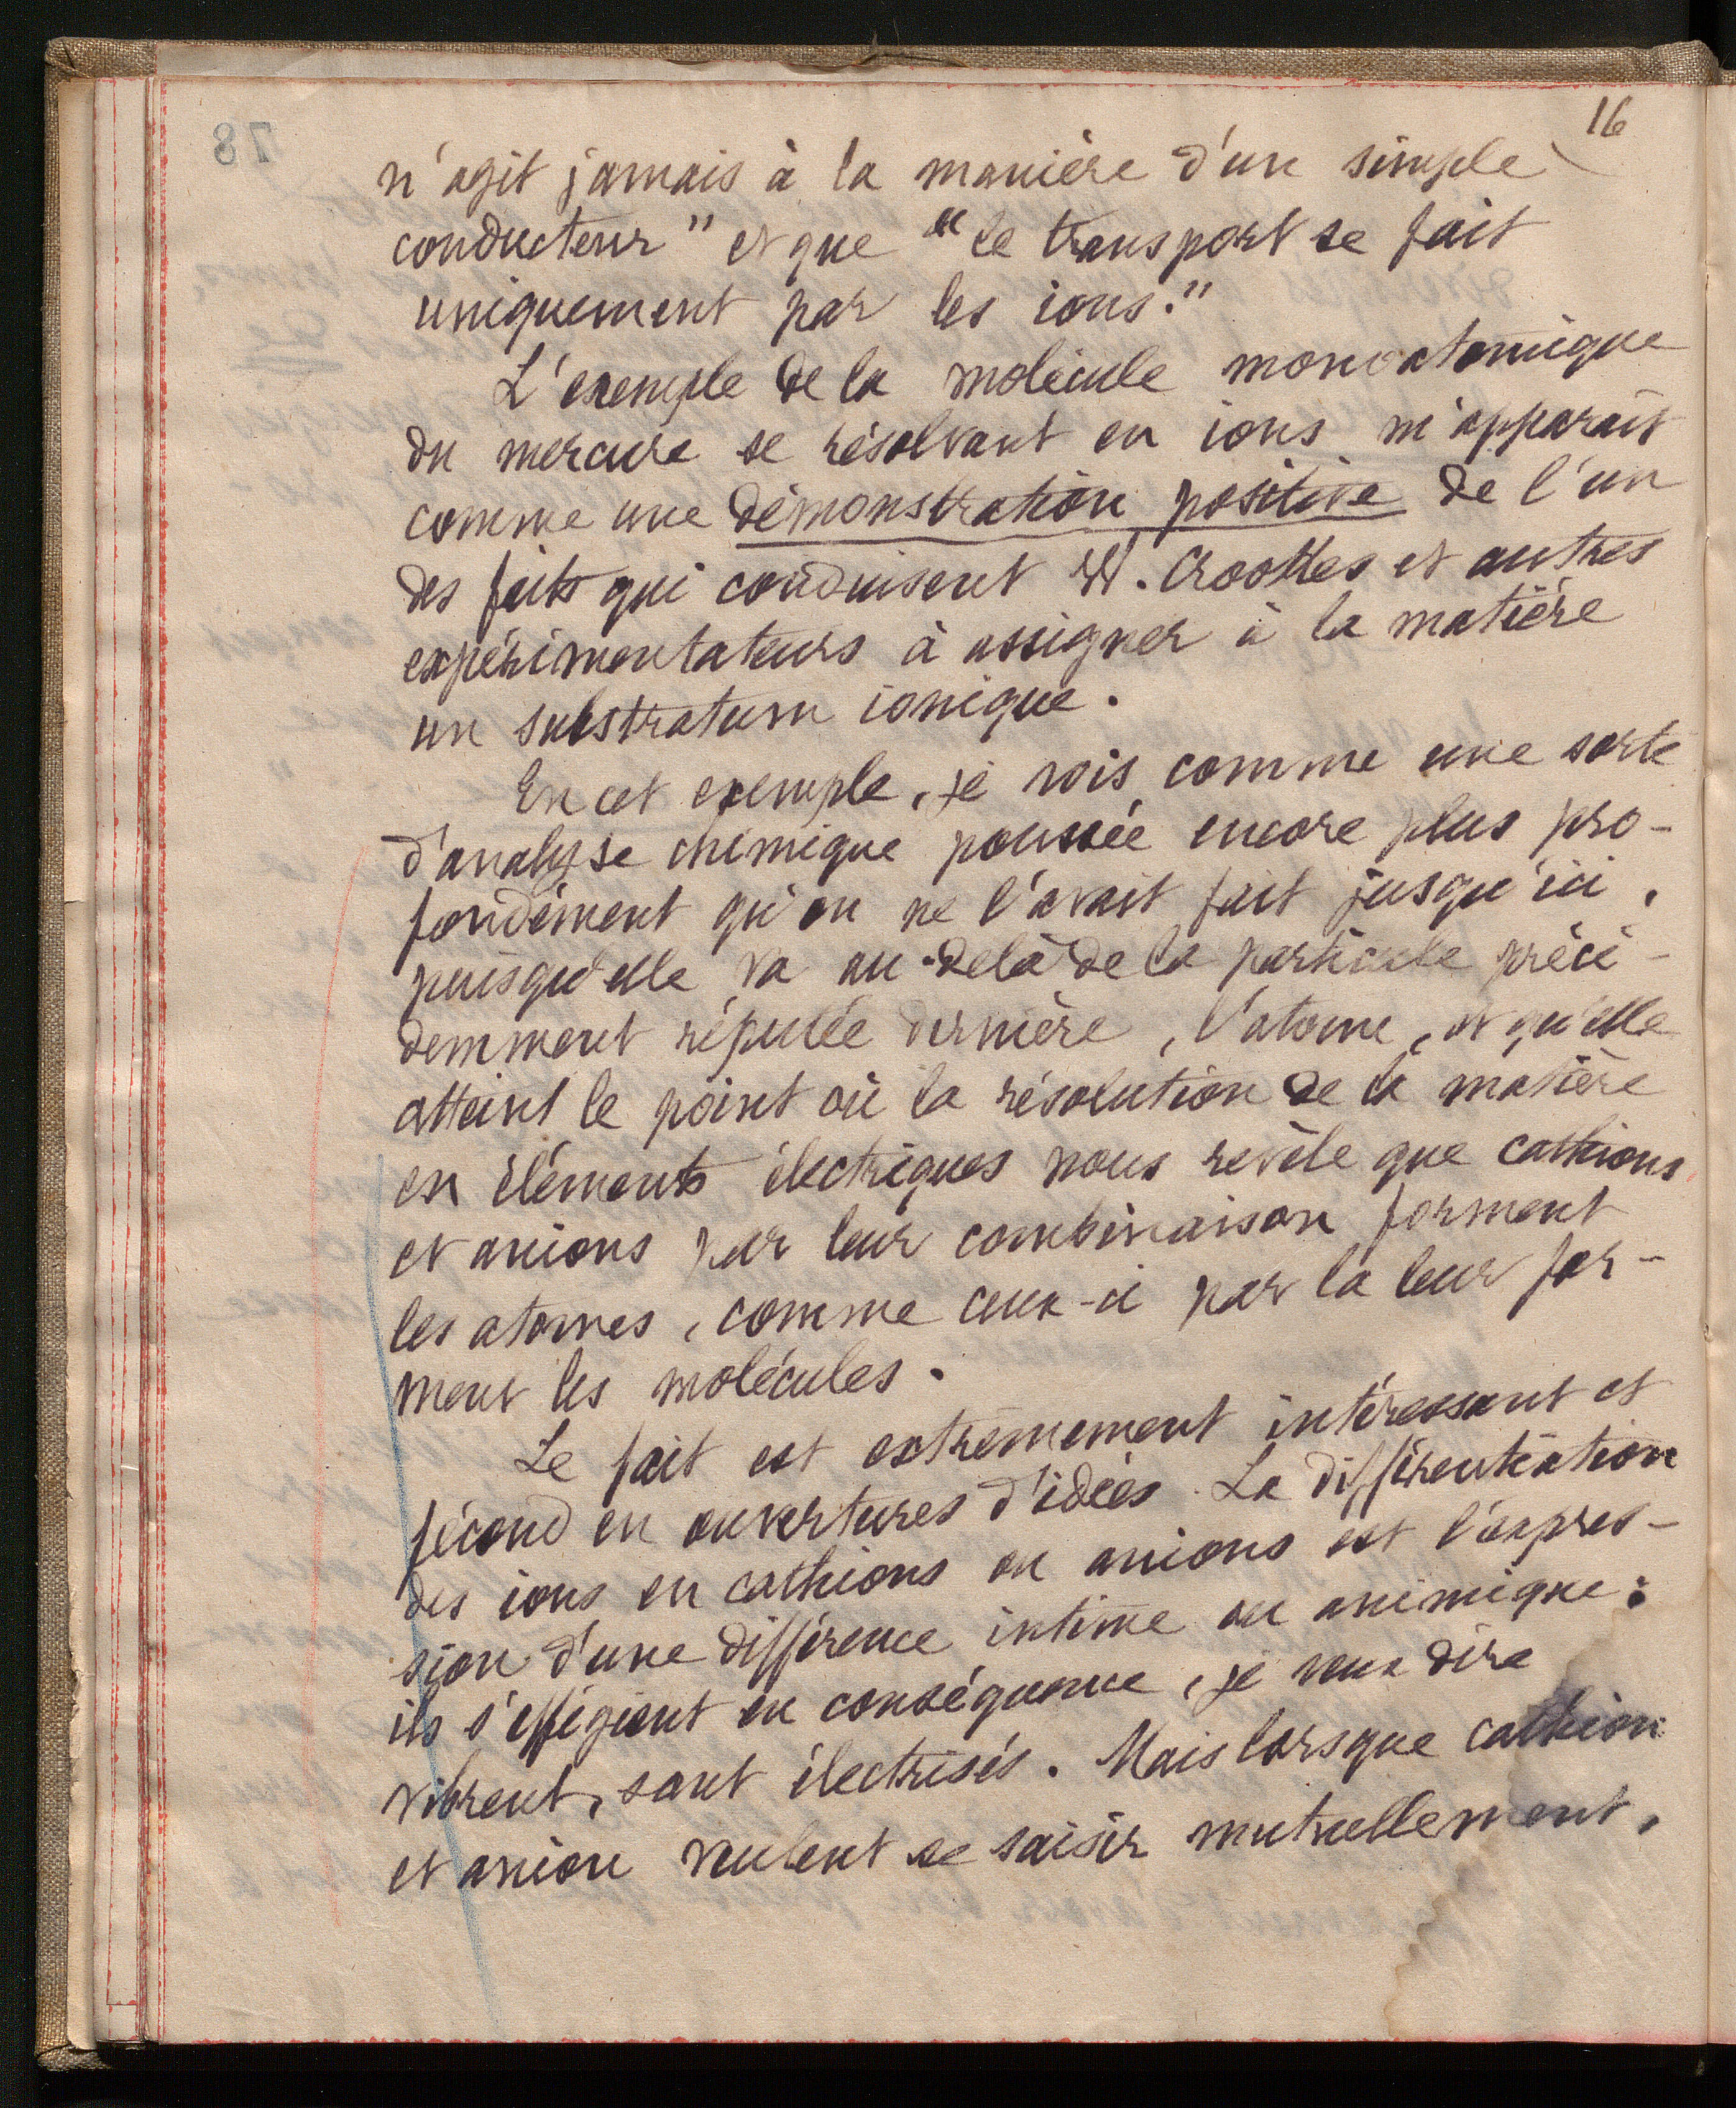 16
n'agit jamais à la manière d'un simple
conducteur" et que "le transport se fait
uniquement par les ions."
L'exemple de la molécule monoatomique
du mercure se résolvant en ions m'apparaît
comme une démonstration positive de l'un
des faits qui conduisent W. Crookes et autres
expérimentateurs à assigner à la matière
un substratum ionique.
En cet exemple, je vois comme une sorte
d'analyse chimique poussée encore plus pro-
fondément qu'on ne l'avait fait jusqu'ici,
puisqu'elle va au-delà de la particule précé-
demment réputée dernière, l'atome, et qu'elle
atteint le point où la résolution de la matière
en éléments électriques nous révèle que cathions
et anions par leur combinaison forment
les atomes, comme ceux-ci par la leur for-
ment les molécules.
Le fait est extrêmement intéressant et
fécond en ouvertures d'idées. La différentiation
des ions en cathions ou anions est l'expres-
sion d'une différence intime ou animique:
ils s'effigient en conséquence, je veux dire
vibrent, sont électrisés. Mais lorsque cathion
et anion veulent se saisir mutuellement,
78